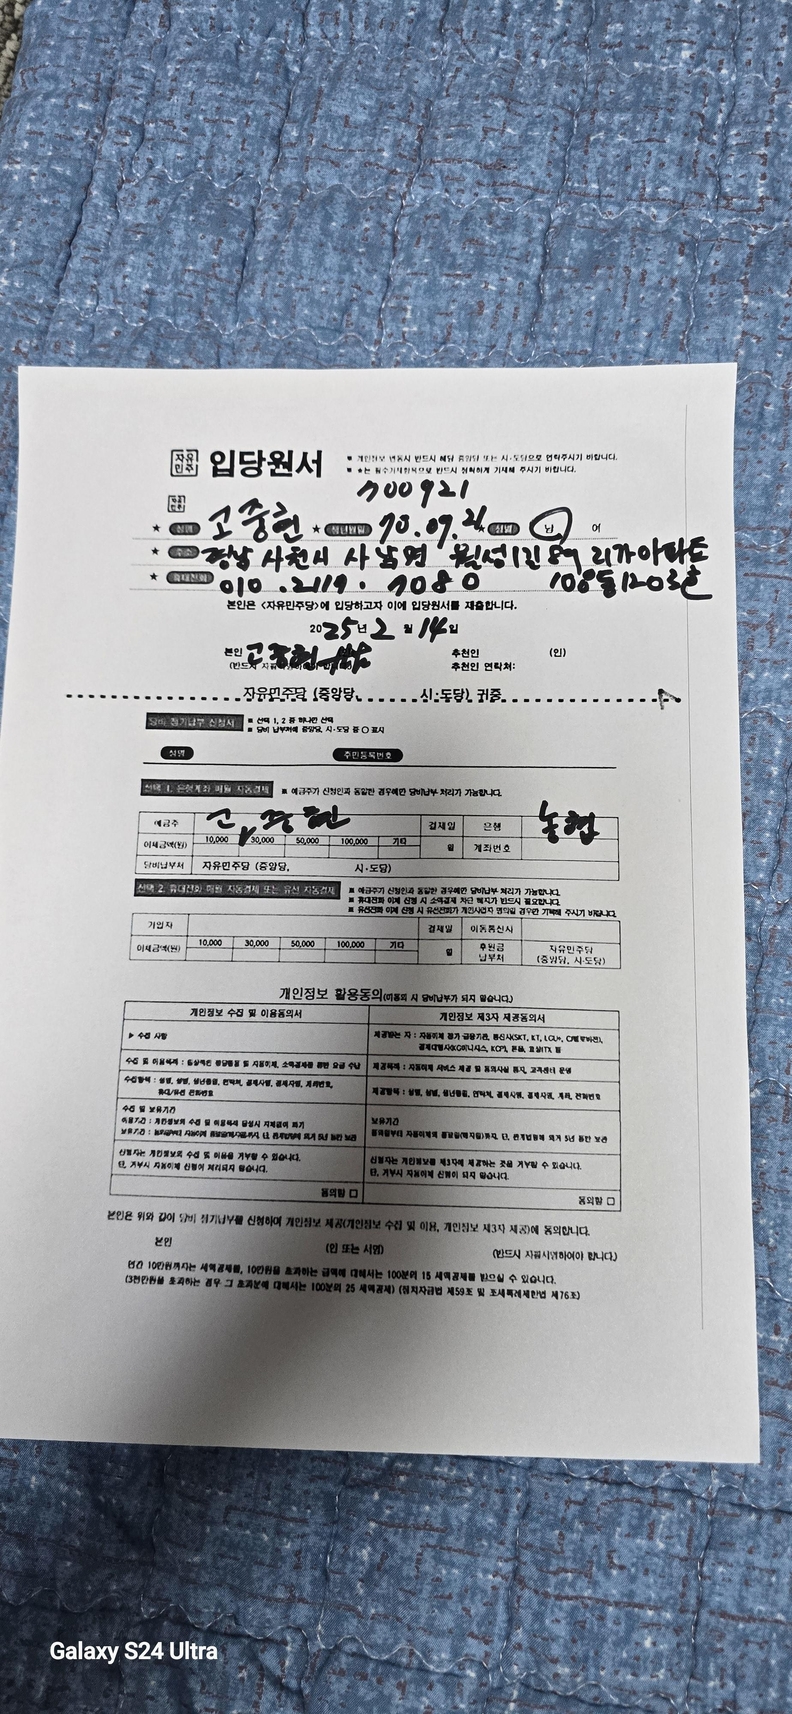 자유민주 입당원서
■ 개인정보 변동시 반드시 해당 중앙당 또는 시·도당으로 연락주시기 바랍니다.
■ ★는 필수기재항목으로 반드시 정확하게 기재해 주시기 바랍니다.
700921
자유민주
★ 성명 고중현 ★ 생년월일 70.09.21 ★ 성별 남 여
★ 주소 경남 사천시 사남면 월성1길 89 리가아파트
108동1203호
★ 휴대전화 010.2119.7080
본인은 <자유민주당>에 입당하고자 이에 입당원서를 제출합니다.
2025년 2월 14일
본인 고중현 추천인 (인)
(반드시 추천인 연락처:
자유민주당 (중앙당, 시·도당) 귀중
당비 정기납부 신청서 ■ 선택 1, 2 중 하나만 선택
■ 당비 납부처에 중앙당, 시·도당 중 ○ 표시
성명 주민등록번호
선택 1. 은행계좌 매월 자동결제 ■ 예금주가 신청인과 동일한 경우에만 당비납부 처리가 가능합니다.
예금주 고중현 결제일 은행 농협
이체금액(원) 10,000 30,000 50,000 100,000 기타 일 계좌번호
당비납부처 자유민주당 (중앙당, 시·도당)
선택 2. 휴대전화 매월 자동결제 또는 유선 자동결제 ■ 예금주가 신청인과 동일한 경우에만 당비납부 처리가 가능합니다.
■ 휴대전화 이체 신청 시 소액결제 차단 해지가 반드시 필요합니다.
■ 유선전화 이체 신청 시 유선전화가 개인사업자 명의일 경우만 기재해 주시기 바랍니다.
가입자 결제일 이동통신사
이체금액(원) 10,000 30,000 50,000 100,000 기타 일 후원금 납부처 자유민주당 (중앙당, 시·도당)
개인정보 활용동의(미동의 시 당비납부가 되지 않습니다.)
개인정보 수집 및 이용동의서 개인정보 제3자 제공동의서
▶ 수집 사항
제공받는 자 : 자동이체 정기 금융기관, 통신사(SKT, KT, LGU+,
수집항목 : 성명, 성별, 생년월일, 연락처, 결제사명, 결제자명, 계좌번호,
휴대/유선 전화번호
제공목적 : 자동이체 서비스 제공 및 동의사실 통지, 고객센터 운영
제공항목 : 성명, 성별, 생년월일, 연락처, 결제사명, 결제자명, 계좌, 전화번호
수집 및 보유기간
보유기간
신청자는 개인정보의 수집 및 이용을 거부할 수 있습니다.
단, 거부시 자동이체 신청이 처리되지 않습니다.
신청자는 개인정보를 제3자에 제공하는 것을 거부할 수 있습니다.
단, 거부시 자동이체 신청이 되지 않습니다.
동의함 □ 동의함 □
본인은 위와 같이 당비 정기납부를 신청하며 개인정보 제공(개인정보 수집 및 이용, 개인정보 제3자 제공)에 동의합니다.
본인 (인 또는 서명) (반드시 자필서명하여야 합니다.)
연간 10만원까지는 세액공제를, 10만원을 초과하는 금액에 대해서는 100분의 15 세액공제를 받으실 수 있습니다.
(3천만원을 초과하는 경우 그 초과분에 대해서는 100분의 25 세액공제) (정치자금법 제59조 및 조세특례제한법 제76조)
Galaxy S24 Ultra